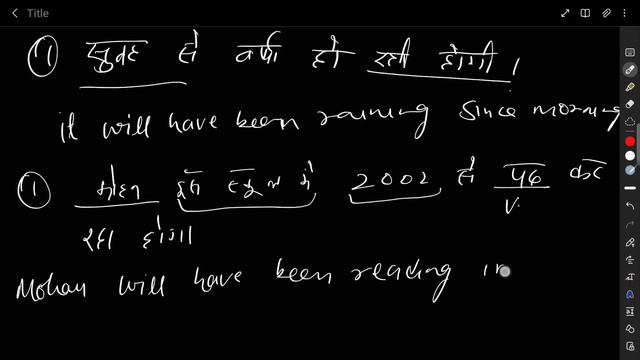 Title
① सुबह से वर्षा हो रही होगी ।
it will have been raining since morning
① मोहन इस स्कूल में 2002 से पढ़
V.
रहा होगा
Mohan will have been reading in